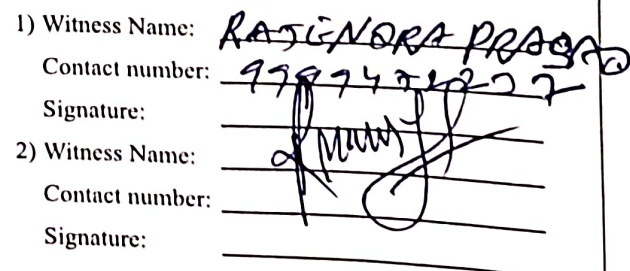 1) Witness Name: RAJENDRA PRASAD
Contact number:
Signature:
2) Witness Name:
Contact number:
Signature: